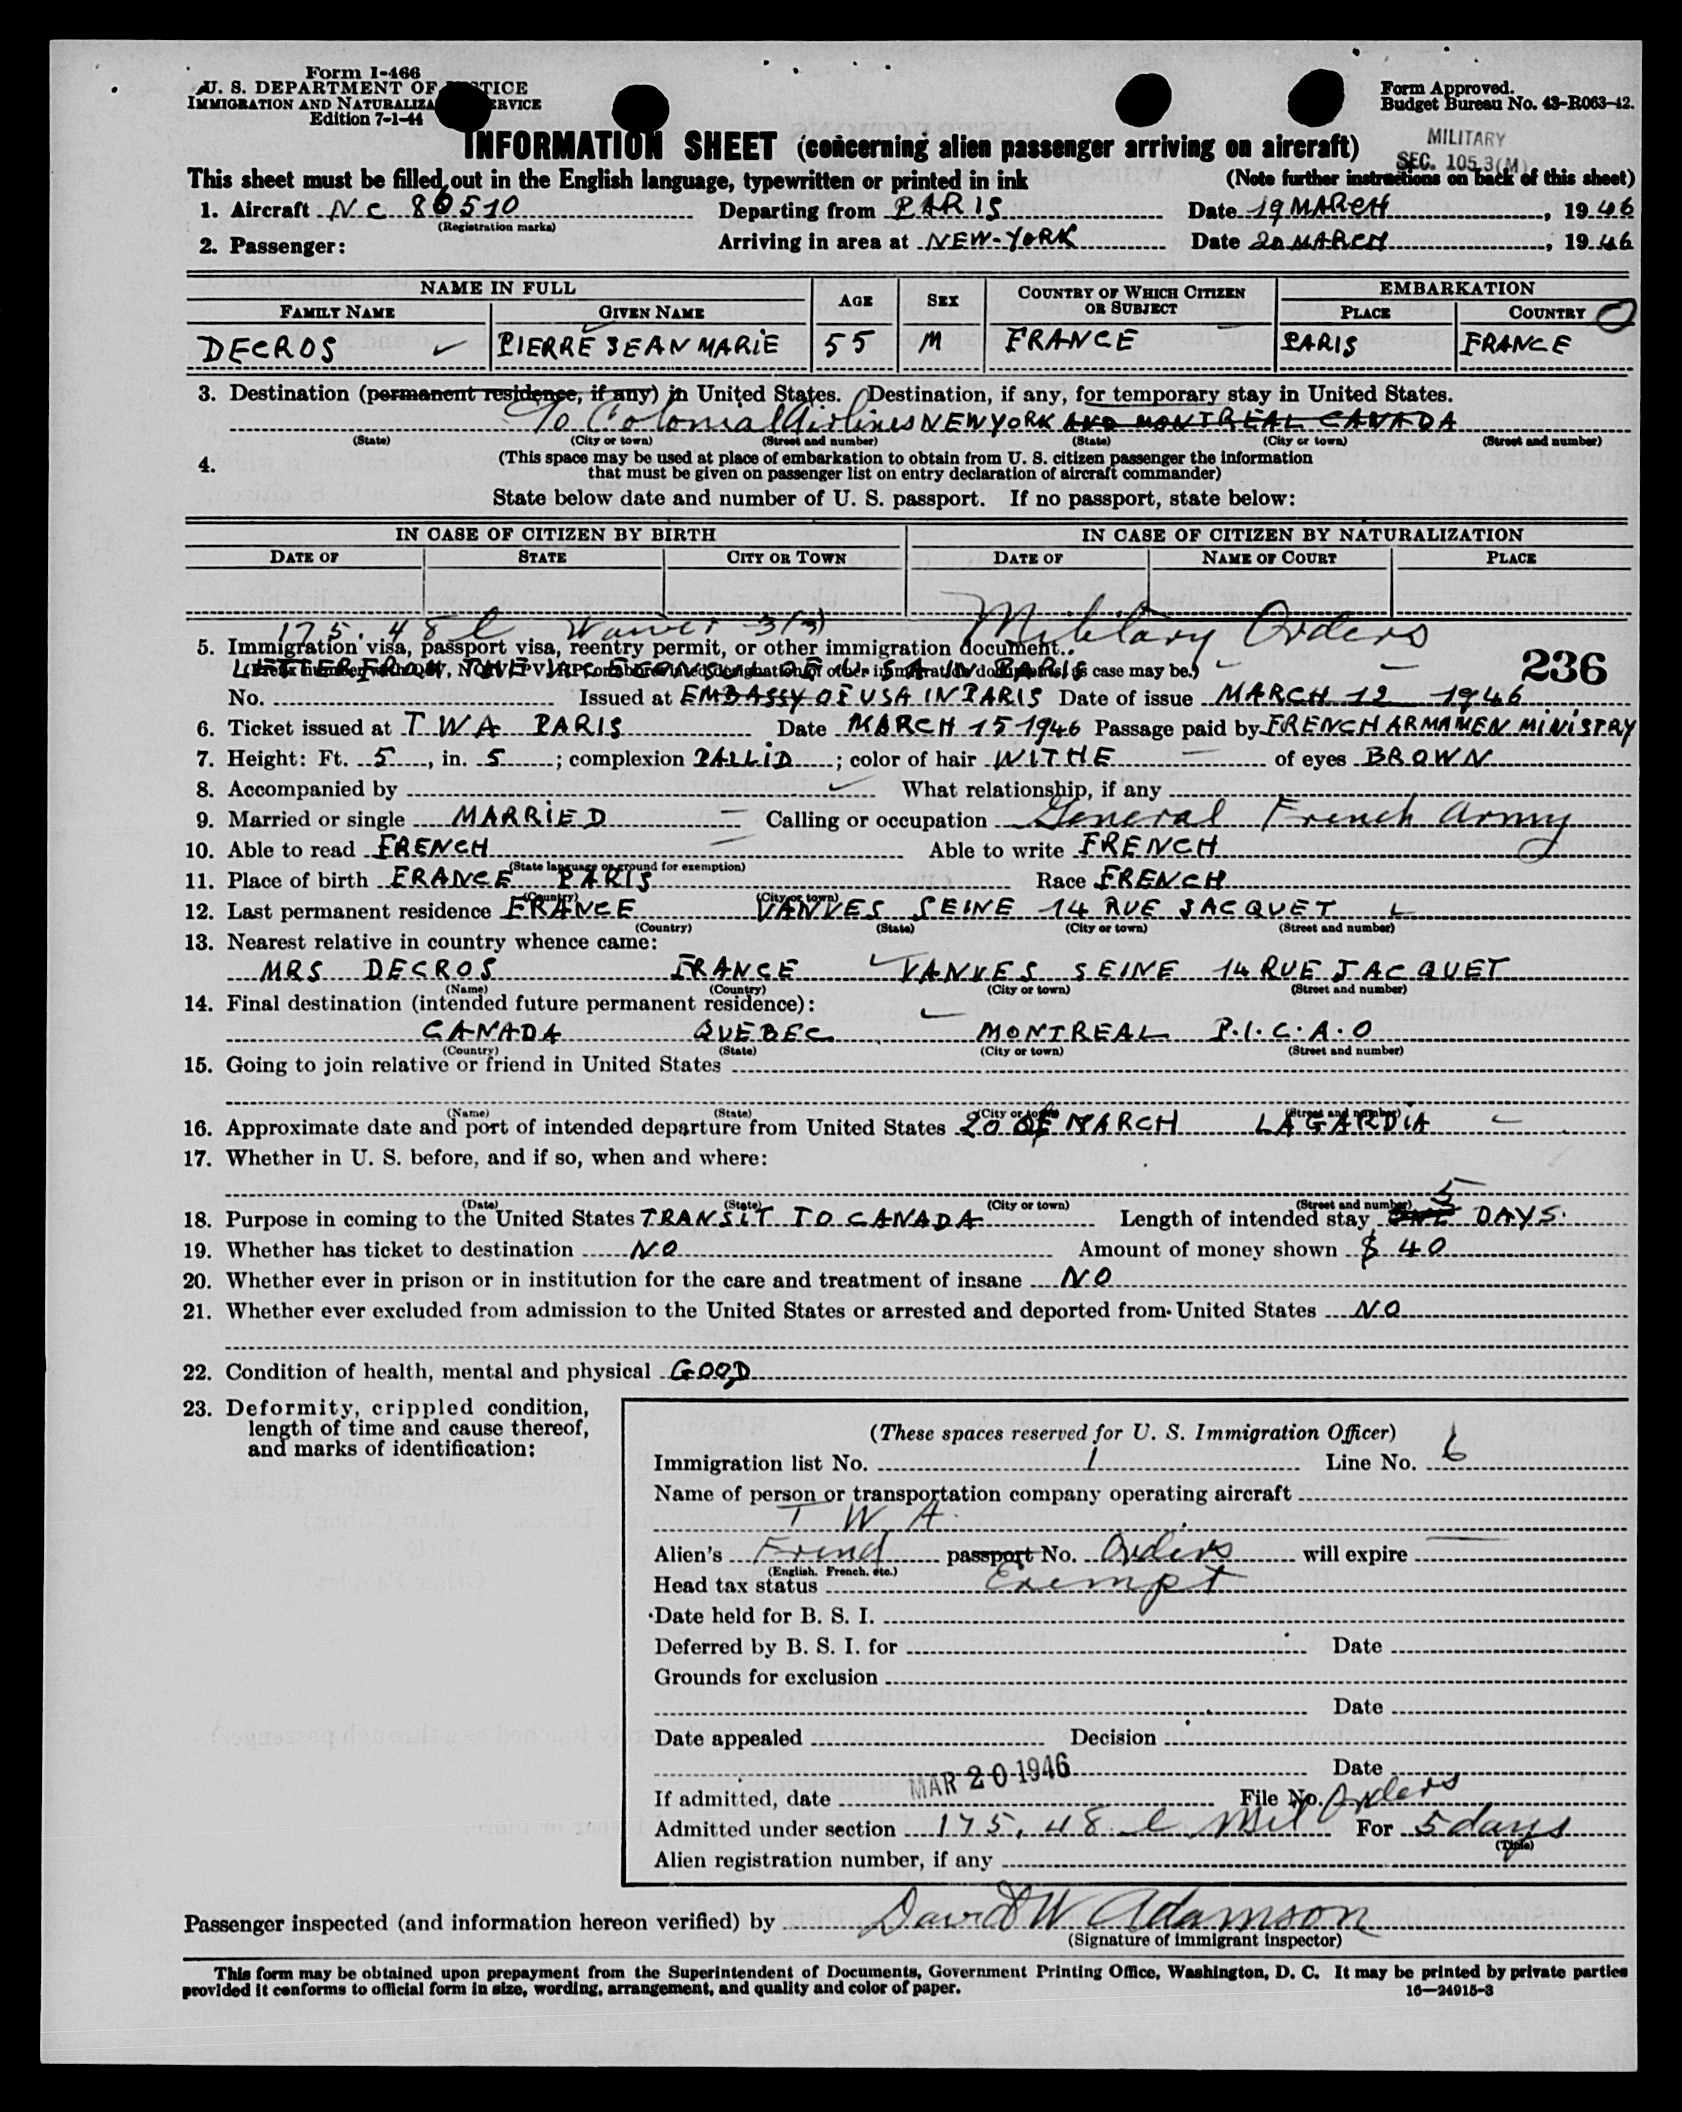 Form I-466
U. S. DEPARTMENT OF JUSTICE
IMMIGRATION AND NATURALIZATION SERVICE
Edition 7-1-44
Form Approved.
Budget Bureau No. 43-R063-42.
INFORMATION SHEET (concerning alien passenger arriving on aircraft)
MILITARY
SEC. 105.3(M)
This sheet must be filled out in the English language, typewritten or printed in ink (Note further instructions on back of this sheet)
1. Aircraft NC 86510 Departing from PARIS Date 19 MARCH, 1946
(Registration marks)
2. Passenger: Arriving in area at NEW-YORK Date 20 MARCH, 1946
NAME IN FULL AGE SEX COUNTRY OF WHICH CITIZEN OR SUBJECT EMBARKATION
FAMILY NAME GIVEN NAME PLACE COUNTRY
DECROS PIERRE JEAN MARIE 55 M FRANCE PARIS FRANCE
3. Destination (permanent residence, if any) in United States. Destination, if any, for temporary stay in United States.
To Colonial Airlines NEW YORK AND MONTREAL CANADA
(State) (City or town) (Street and number) (State) (City or town) (Street and number)
4. (This space may be used at place of embarkation to obtain from U. S. citizen passenger the information
that must be given on passenger list on entry declaration of aircraft commander)
State below date and number of U. S. passport. If no passport, state below:
IN CASE OF CITIZEN BY BIRTH IN CASE OF CITIZEN BY NATURALIZATION
DATE OF STATE CITY OR TOWN DATE OF NAME OF COURT PLACE
175.48 e Waiver 3(3) Military Orders
5. Immigration visa, passport visa, reentry permit, or other immigration document.
LETTER FROM THE VICE CONSUL OF U.S.A IN PARIS case may be.)
236
No. Issued at EMBASSY OF USA IN PARIS Date of issue MARCH 12 1946
6. Ticket issued at TWA PARIS Date MARCH 15 1946 Passage paid by FRENCH ARMAMEN MINISTRY
7. Height: Ft. 5, in. 5; complexion PALLID; color of hair WITHE of eyes BROWN
8. Accompanied by What relationship, if any
9. Married or single MARRIED Calling or occupation General French Army
10. Able to read FRENCH Able to write FRENCH
(State language or ground for exemption)
11. Place of birth FRANCE PARIS Race FRENCH
(Country) (City or town)
12. Last permanent residence FRANCE VANVES SEINE 14 RUE JACQUET
(Country) (State) (City or town) (Street and number)
13. Nearest relative in country whence came:
MRS DECROS FRANCE VANVES SEINE 14 RUE JACQUET
(Name) (Country) (City or town) (Street and number)
14. Final destination (intended future permanent residence):
CANADA QUEBEC MONTREAL P.I.C.A.O
(Country) (State) (City or town) (Street and number)
15. Going to join relative or friend in United States
(Name) (State) (City or town) (Street and number)
16. Approximate date and port of intended departure from United States 20 OF MARCH LAGARDIA
17. Whether in U. S. before, and if so, when and where:
(Date) (State) (City or town) (Street and number)
18. Purpose in coming to the United States TRANSIT TO CANADA Length of intended stay 5 DAYS.
19. Whether has ticket to destination NO Amount of money shown $ 40
20. Whether ever in prison or in institution for the care and treatment of insane NO
21. Whether ever excluded from admission to the United States or arrested and deported from United States NO
22. Condition of health, mental and physical GOOD
23. Deformity, crippled condition,
length of time and cause thereof,
and marks of identification:
(These spaces reserved for U. S. Immigration Officer)
Immigration list No. 1 Line No. 6
Name of person or transportation company operating aircraft
T W A.
Alien's French passport No. Orders will expire
(English. French. etc.)
Head tax status Exempt
Date held for B. S. I.
Deferred by B. S. I. for Date
Grounds for exclusion
Date
Date appealed Decision
Date
If admitted, date MAR 20 1946 File No. Orders
Admitted under section 175.48 e Mil For 5 days
(Time)
Alien registration number, if any
Passenger inspected (and information hereon verified) by David W Adamson
(Signature of immigrant inspector)
This form may be obtained upon prepayment from the Superintendent of Documents, Government Printing Office, Washington, D. C. It may be printed by private parties
provided it conforms to official form in size, wording, arrangement, and quality and color of paper. 16—24915-3